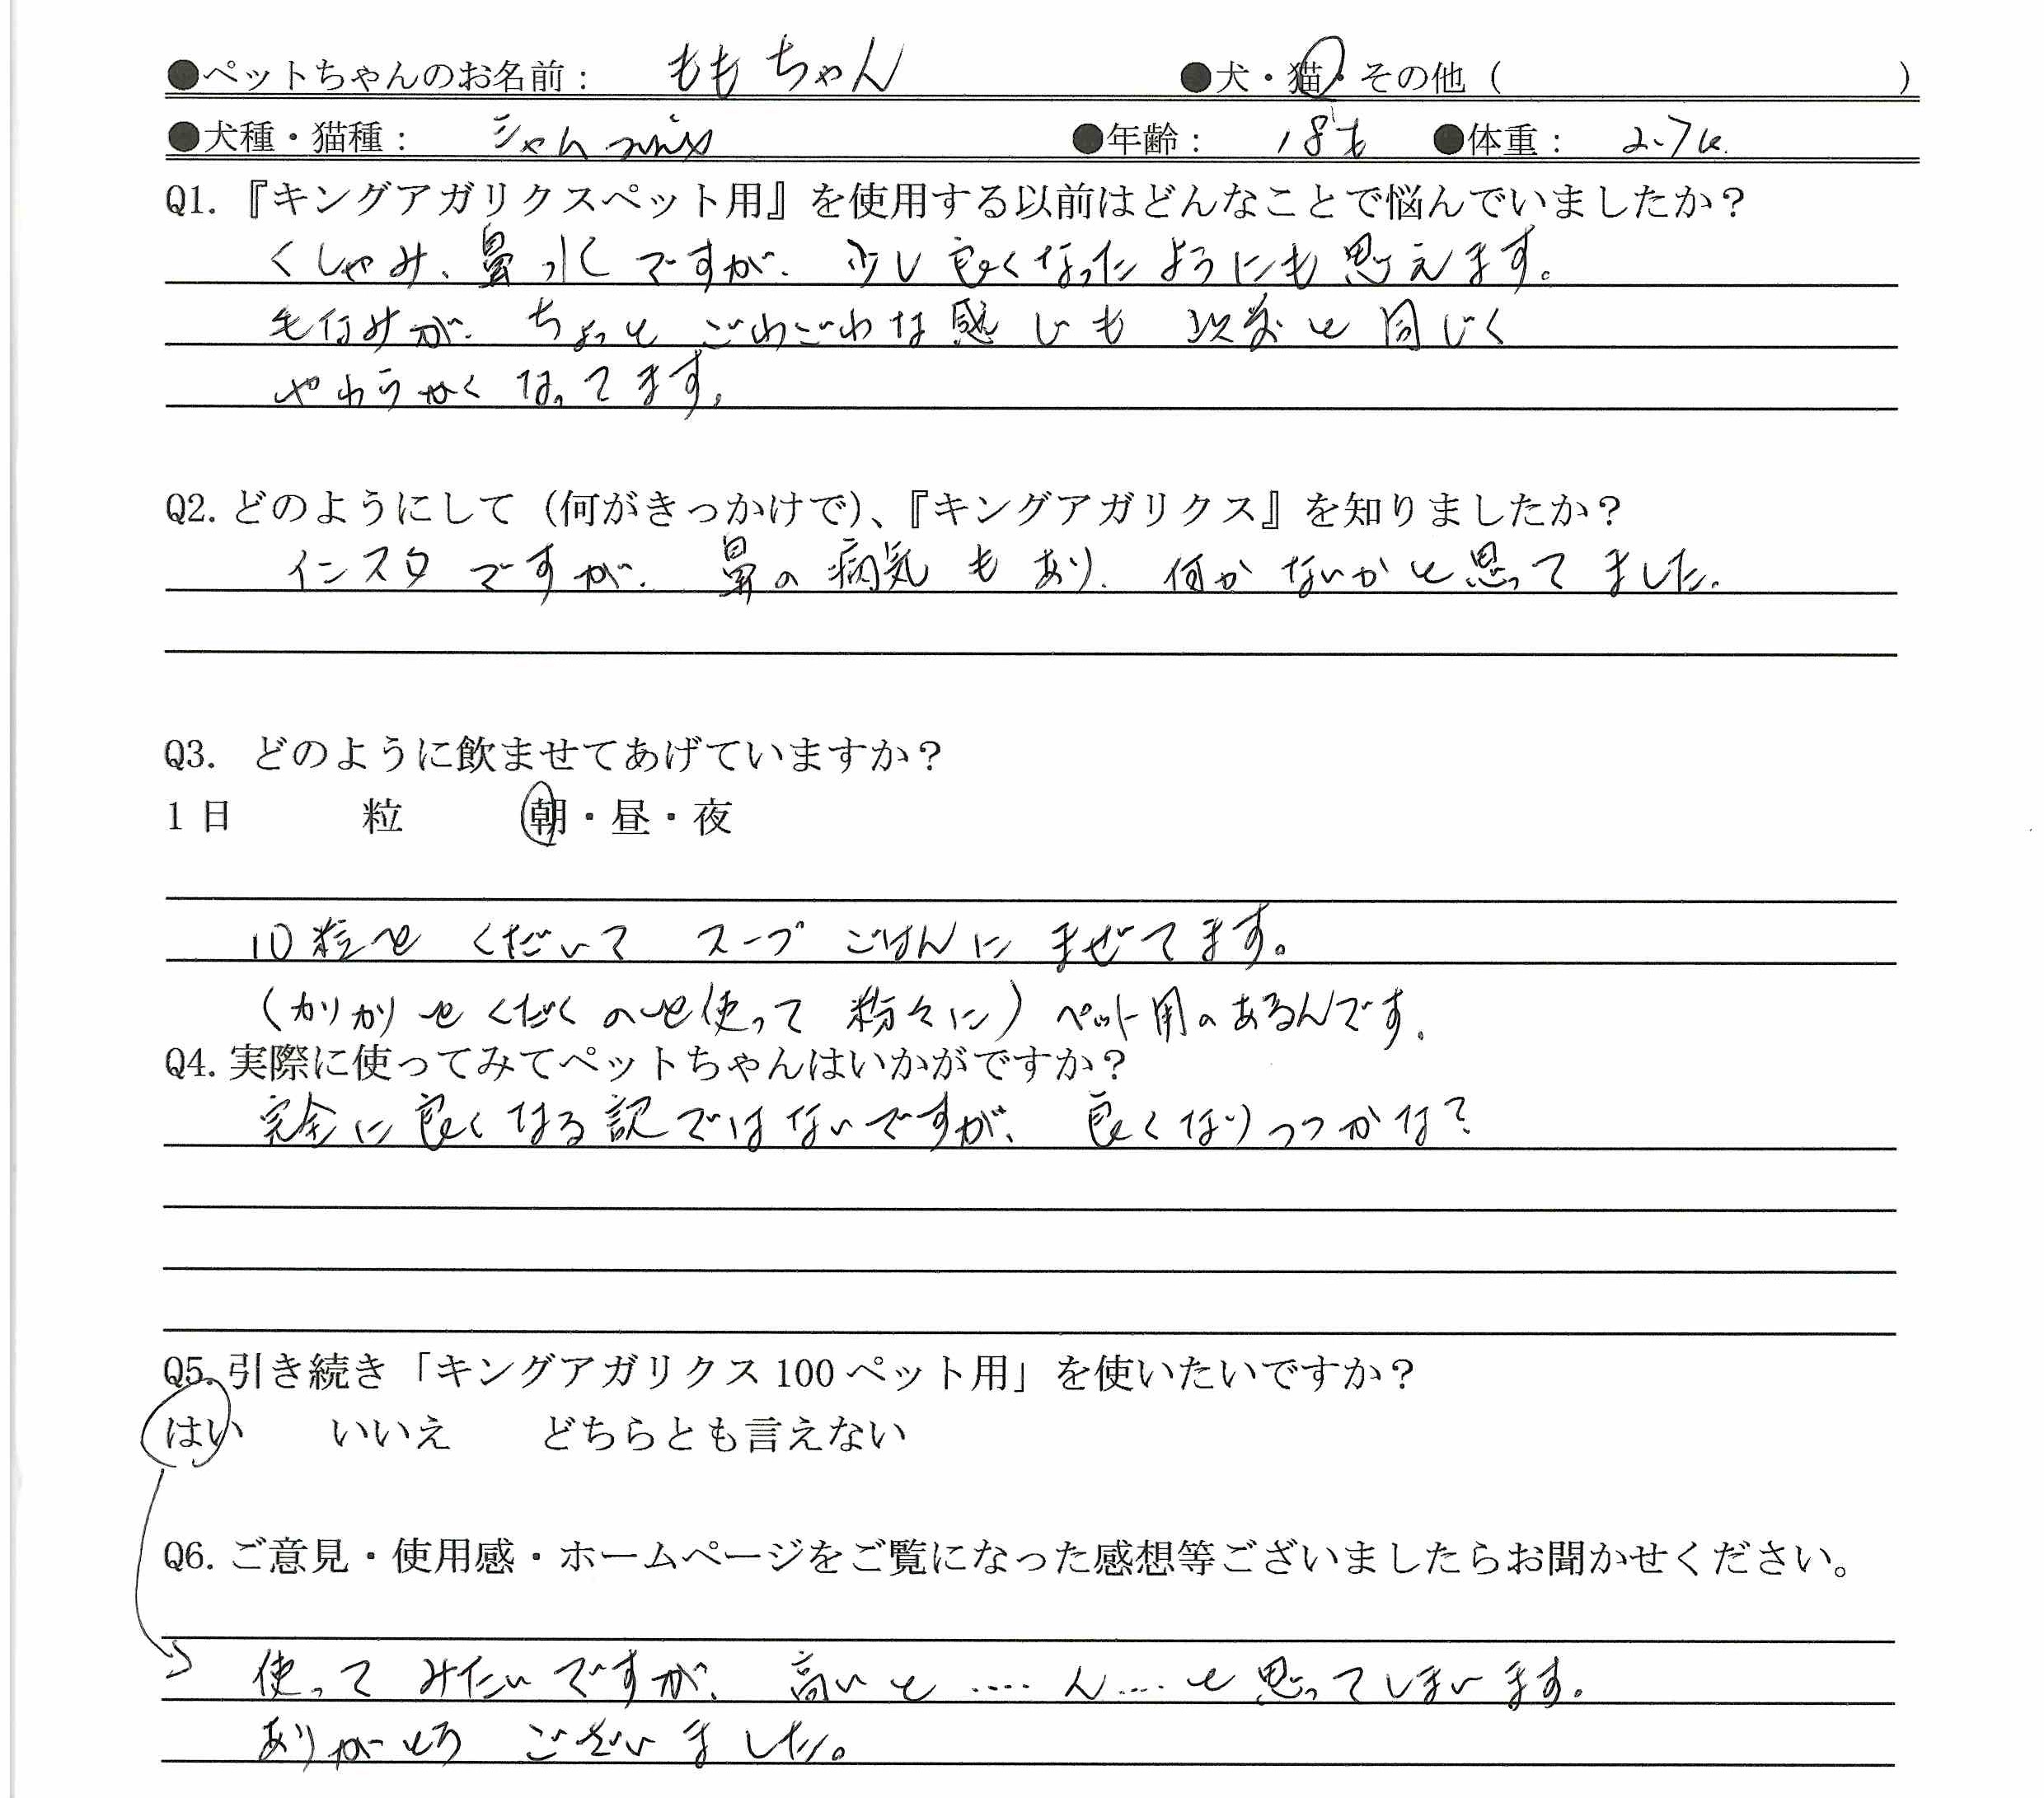 ●ペットちゃんのお名前： ももちゃん ●犬・猫・その他（ ）
●犬種・猫種： シャムmix ●年齢： 18才 ●体重： 2.7K.
Q1.『キングアガリクスペット用』を使用する以前はどんなことで悩んでいましたか？
くしゃみ、鼻水ですが、少し良くなったようにも思えます。
毛なみが、ちょっとごわごわな感じも 以前と同じく
やわらかくなってます。
Q2.どのようにして（何がきっかけで）、『キングアガリクス』を知りましたか？
インスタですが、鼻の病気もあり、何かないかと思ってました。
Q3. どのように飲ませてあげていますか？
1日 粒 朝・昼・夜
10粒をくだいてスープごはんにまぜてます。
（カリカリをくだくのを使って粉々に）ペット用のあるんです。
Q4.実際に使ってみてペットちゃんはいかがですか？
完全に良くなる訳ではないですが、良くなりつつかな？
Q5.引き続き「キングアガリクス100ペット用」を使いたいですか？
はい いいえ どちらとも言えない
Q6.ご意見・使用感・ホームページをご覧になった感想等ございましたらお聞かせください。
→ 使ってみたいですが、高いと‥‥ん‥‥と思ってしまいます。
ありがとうございました。